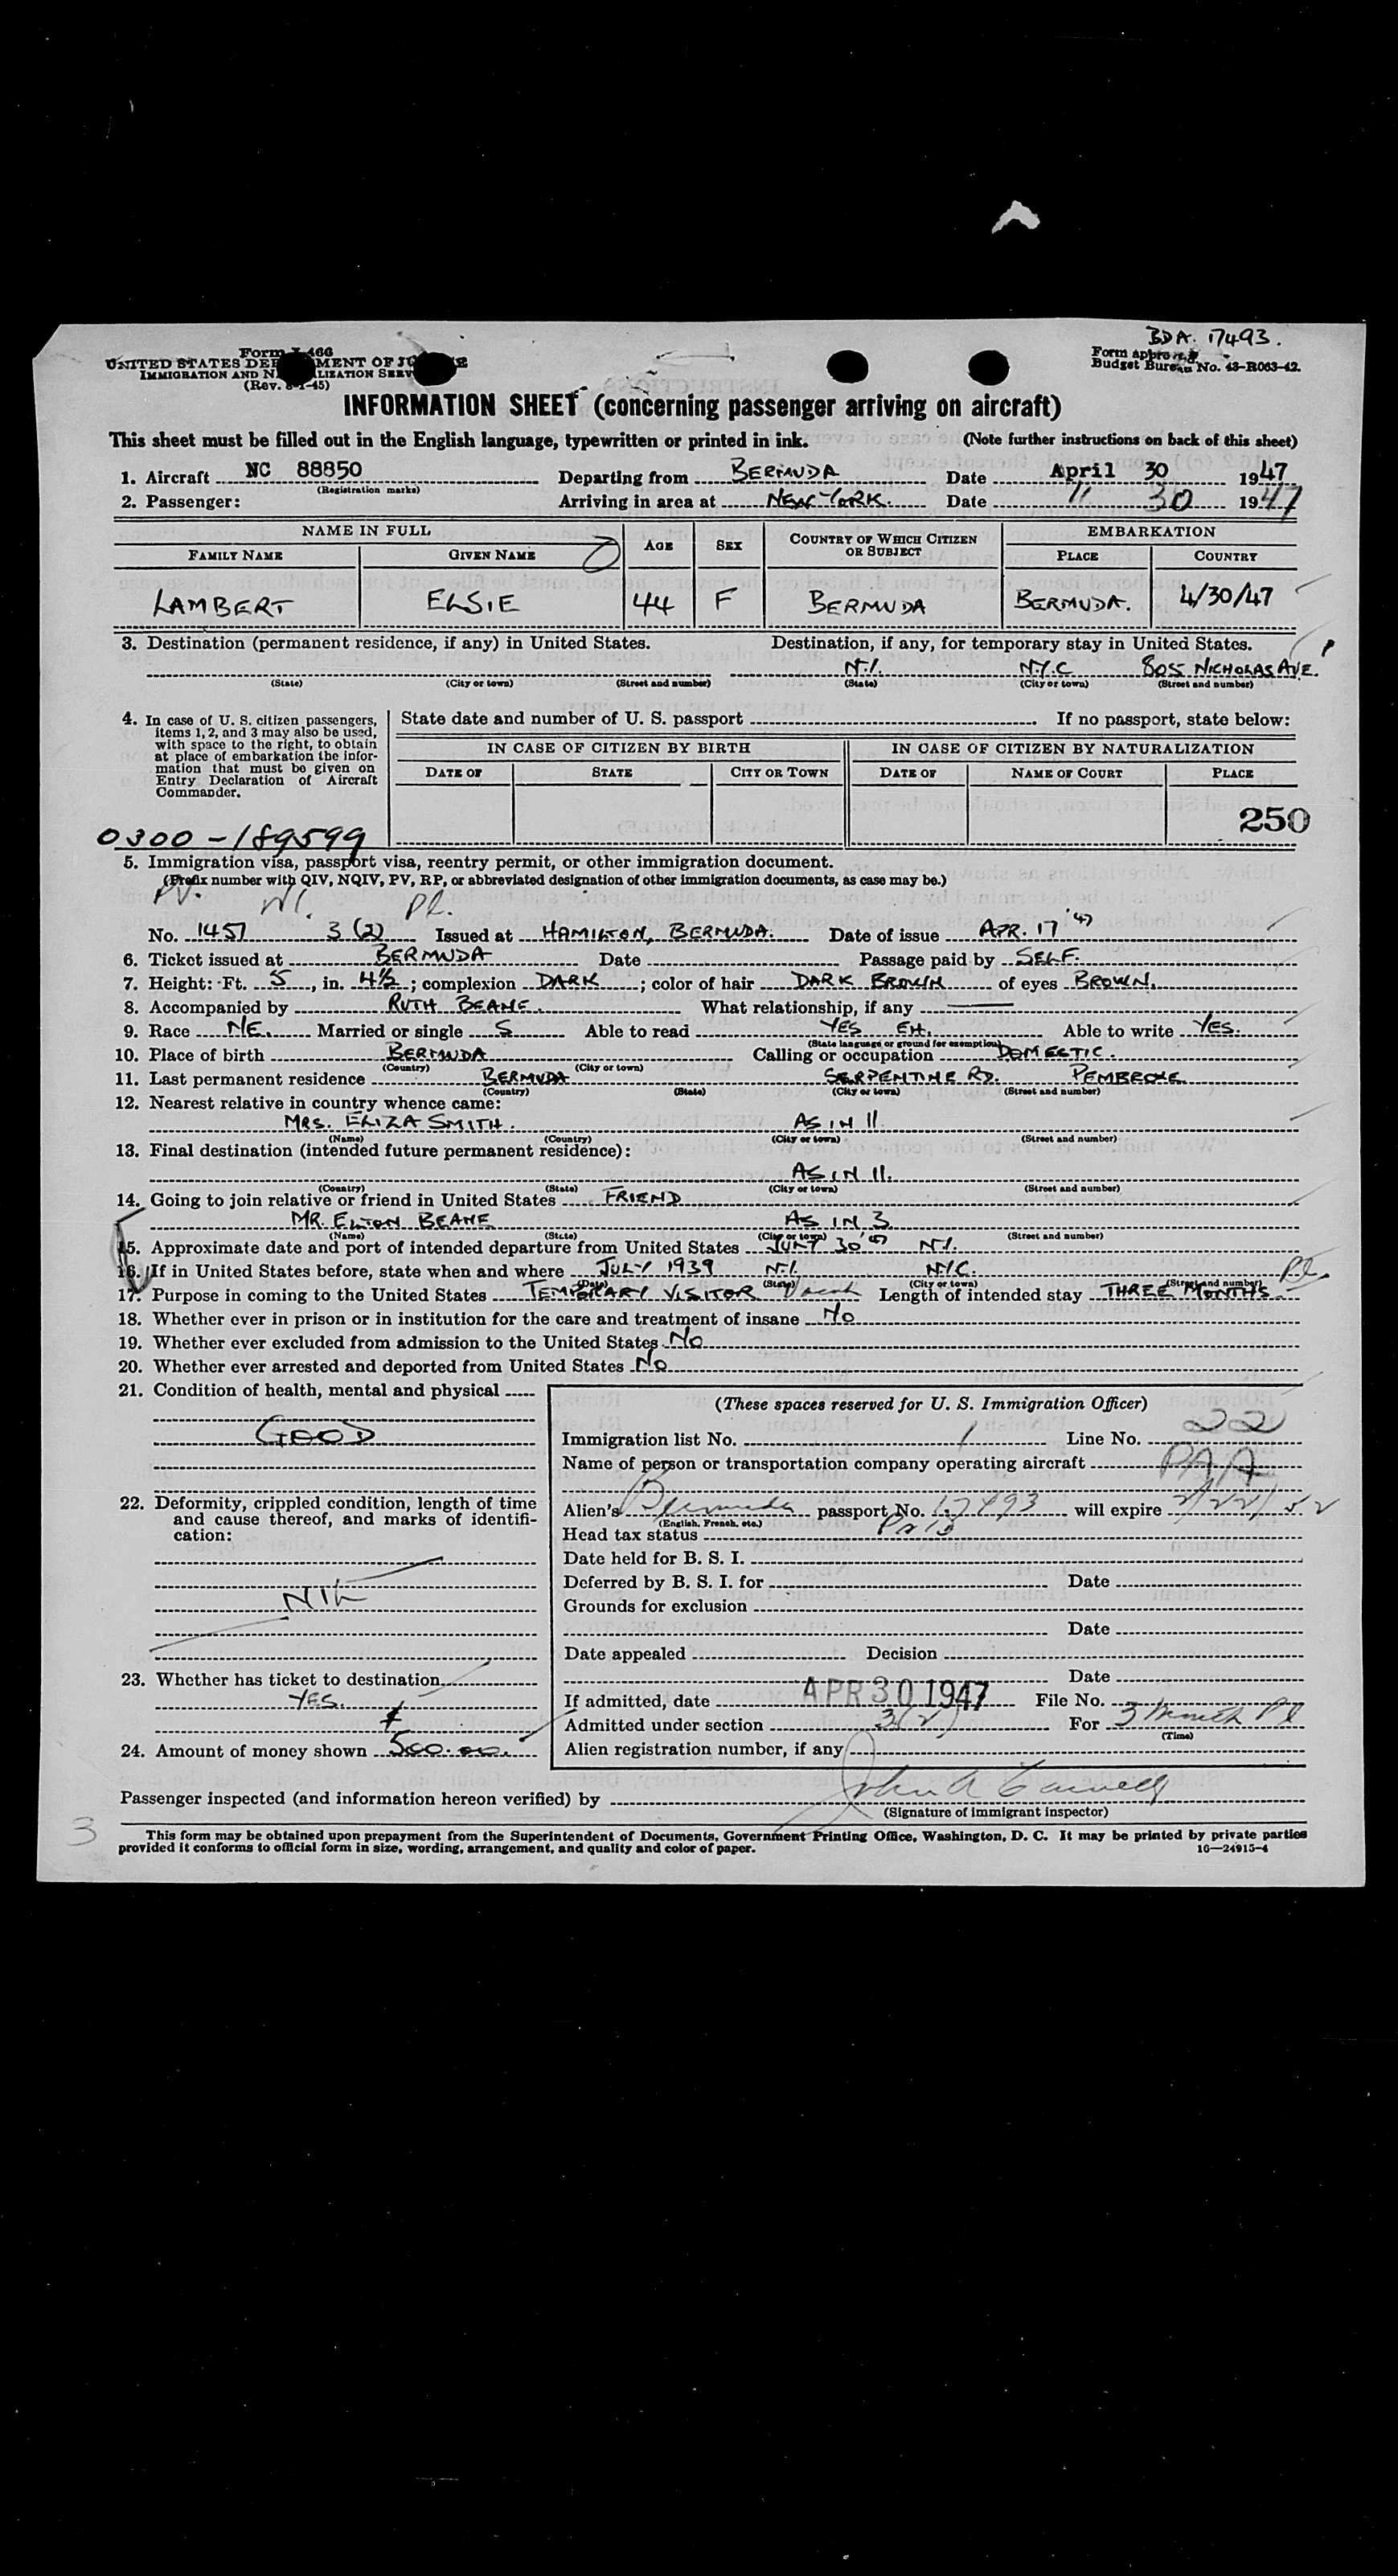 BDA. 17493.
Form I-466
UNITED STATES DEPARTMENT OF JUSTICE
IMMIGRATION AND NATURALIZATION SERVICE
(Rev. 8-1-45)
Form approved.
Budget Bureau No. 43-R063-42.
INFORMATION SHEET (concerning passenger arriving on aircraft)
This sheet must be filled out in the English language, typewritten or printed in ink. (Note further instructions on back of this sheet)
1. Aircraft NC 88850 Departing from BERMUDA Date April 30 1947
(Registration marks)
2. Passenger: Arriving in area at NEW YORK. Date 11 30 1947
NAME IN FULL AGE SEX COUNTRY OF WHICH CITIZEN OR SUBJECT EMBARKATION
FAMILY NAME GIVEN NAME PLACE COUNTRY
LAMBERT ELSIE 44 F BERMUDA BERMUDA. 4/30/47
3. Destination (permanent residence, if any) in United States. Destination, if any, for temporary stay in United States.
N.Y. N.Y.C 805 NICHOLAS AVE.
(State) (City or town) (Street and number) (State) (City or town) (Street and number)
4. In case of U. S. citizen passengers, items 1, 2, and 3 may also be used, with space to the right, to obtain at place of embarkation the information that must be given on Entry Declaration of Aircraft Commander.
State date and number of U. S. passport If no passport, state below:
IN CASE OF CITIZEN BY BIRTH IN CASE OF CITIZEN BY NATURALIZATION
DATE OF STATE CITY OR TOWN DATE OF NAME OF COURT PLACE
250
0300-189599
5. Immigration visa, passport visa, reentry permit, or other immigration document.
(Prefix number with QIV, NQIV, PV, RP, or abbreviated designation of other immigration documents, as case may be.)
PV. Pl.
No. 1451 3(2) Issued at HAMILTON, BERMUDA. Date of issue APR. 17 '47
6. Ticket issued at BERMUDA Date Passage paid by SELF.
7. Height: Ft. 5, in. 4½; complexion DARK; color of hair DARK BROWN of eyes BROWN.
8. Accompanied by RUTH BEANE. What relationship, if any
9. Race NE. Married or single S Able to read YES EH. Able to write YES.
(State language or ground for exemption)
10. Place of birth BERMUDA Calling or occupation DOMESTIC.
(Country) (City or town)
11. Last permanent residence BERMUDA SERPENTINE RD. PEMBROKE
(Country) (State) (City or town) (Street and number)
12. Nearest relative in country whence came:
MRS. ELIZA SMITH. AS IN 11
(Name) (Country) (City or town) (Street and number)
13. Final destination (intended future permanent residence):
AS IN 11.
(Country) (State) (City or town) (Street and number)
14. Going to join relative or friend in United States FRIEND
MR. ELTON BEANE AS IN 3
(Name) (State) (City or town) (Street and number)
15. Approximate date and port of intended departure from United States JULY 30 '47 N.Y.
16. If in United States before, state when and where JULY 1939 N.Y. N.Y.C. Pl.
(Date) (State) (City or town) (Street and number)
17. Purpose in coming to the United States TEMPORARY VISITOR Length of intended stay THREE MONTHS
18. Whether ever in prison or in institution for the care and treatment of insane NO
19. Whether ever excluded from admission to the United States NO
20. Whether ever arrested and deported from United States NO
21. Condition of health, mental and physical
GOOD
22. Deformity, crippled condition, length of time and cause thereof, and marks of identification:
NIL
23. Whether has ticket to destination
YES.
24. Amount of money shown 500.00.
(These spaces reserved for U. S. Immigration Officer)
Immigration list No. 1 Line No. 22
Name of person or transportation company operating aircraft PAA
Alien's Bermuda passport No. 17493 will expire 2/22/52
(English, French, etc.)
Head tax status Paid
Date held for B. S. I.
Deferred by B. S. I. for Date
Grounds for exclusion
Date
Date appealed Decision
Date
If admitted, date APR 30 1947 File No.
Admitted under section 3(2) For 3 month Pl
(Time)
Alien registration number, if any
Passenger inspected (and information hereon verified) by John A
(Signature of immigrant inspector)
3
This form may be obtained upon prepayment from the Superintendent of Documents, Government Printing Office, Washington, D. C. It may be printed by private parties
provided it conforms to official form in size, wording, arrangement, and quality and color of paper. 16—24915-4